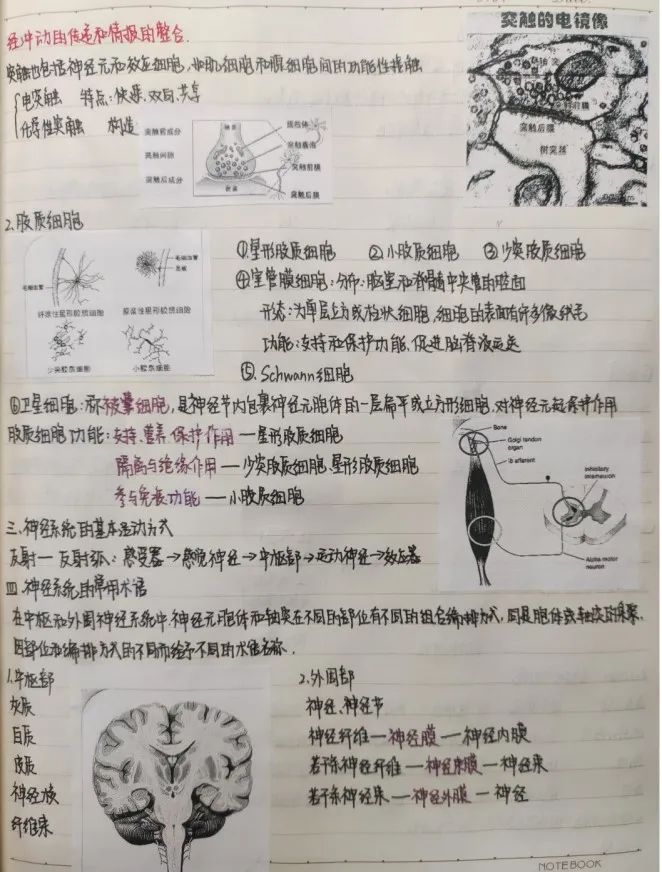 经冲动的传递和情报的整合.
突触的电镜像
突触也包括神经元和效应细胞,如肌细胞和腺细胞间的功能性接触
电突触 特点:快速、双向、共享
化学性突触 构造
突触前成分
突触间隙
突触后成分
轴突
线粒体
突触囊泡
突触前膜
突触后膜
轴突
突触前膜
突触后膜
树突棘
2.胶质细胞
毛细血管
毛细血管
纤维性星形胶质细胞
原浆性星形胶质细胞
少突胶质细胞
小胶质细胞
①星形胶质细胞 ②小胶质细胞 ③少突胶质细胞
④室管膜细胞:分布:脑室和脊髓中央管的壁面
形态:为单层立方或柱状细胞,细胞的表面有许多微绒毛
功能:支持和保护功能,促进脑脊液运送
⑤. Schwann细胞
⑥卫星细胞:亦称被囊细胞,是神经节内包裹神经元胞体的一层扁平或立方形细胞.对神经元起保护作用
胶质细胞功能:支持、营养、保护作用—星形胶质细胞
隔离与绝缘作用—少突胶质细胞、星形胶质细胞
参与免疫功能—小胶质细胞
Bone
Golgi tendon
organ
Ib afferent
Inhibitory
interneuron
Alpha motor
neuron
三.神经系统的基本活动方式
反射—反射弧:感受器→感觉神经→中枢部→运动神经→效应器
四.神经系统的常用术语
在中枢和外周神经系统中,神经元胞体和轴突在不同的部位有不同的组合编排方式,同是胞体或轴突的集聚,
因部位和编排方式的不同而给予不同的术语名称.
1.中枢部
灰质
白质
皮质
神经核
纤维束
2.外周部
神经、神经节
神经纤维—神经膜—神经内膜
若干条神经纤维—神经束膜—神经束
若干条神经束—神经外膜—神经
NOTEBOOK